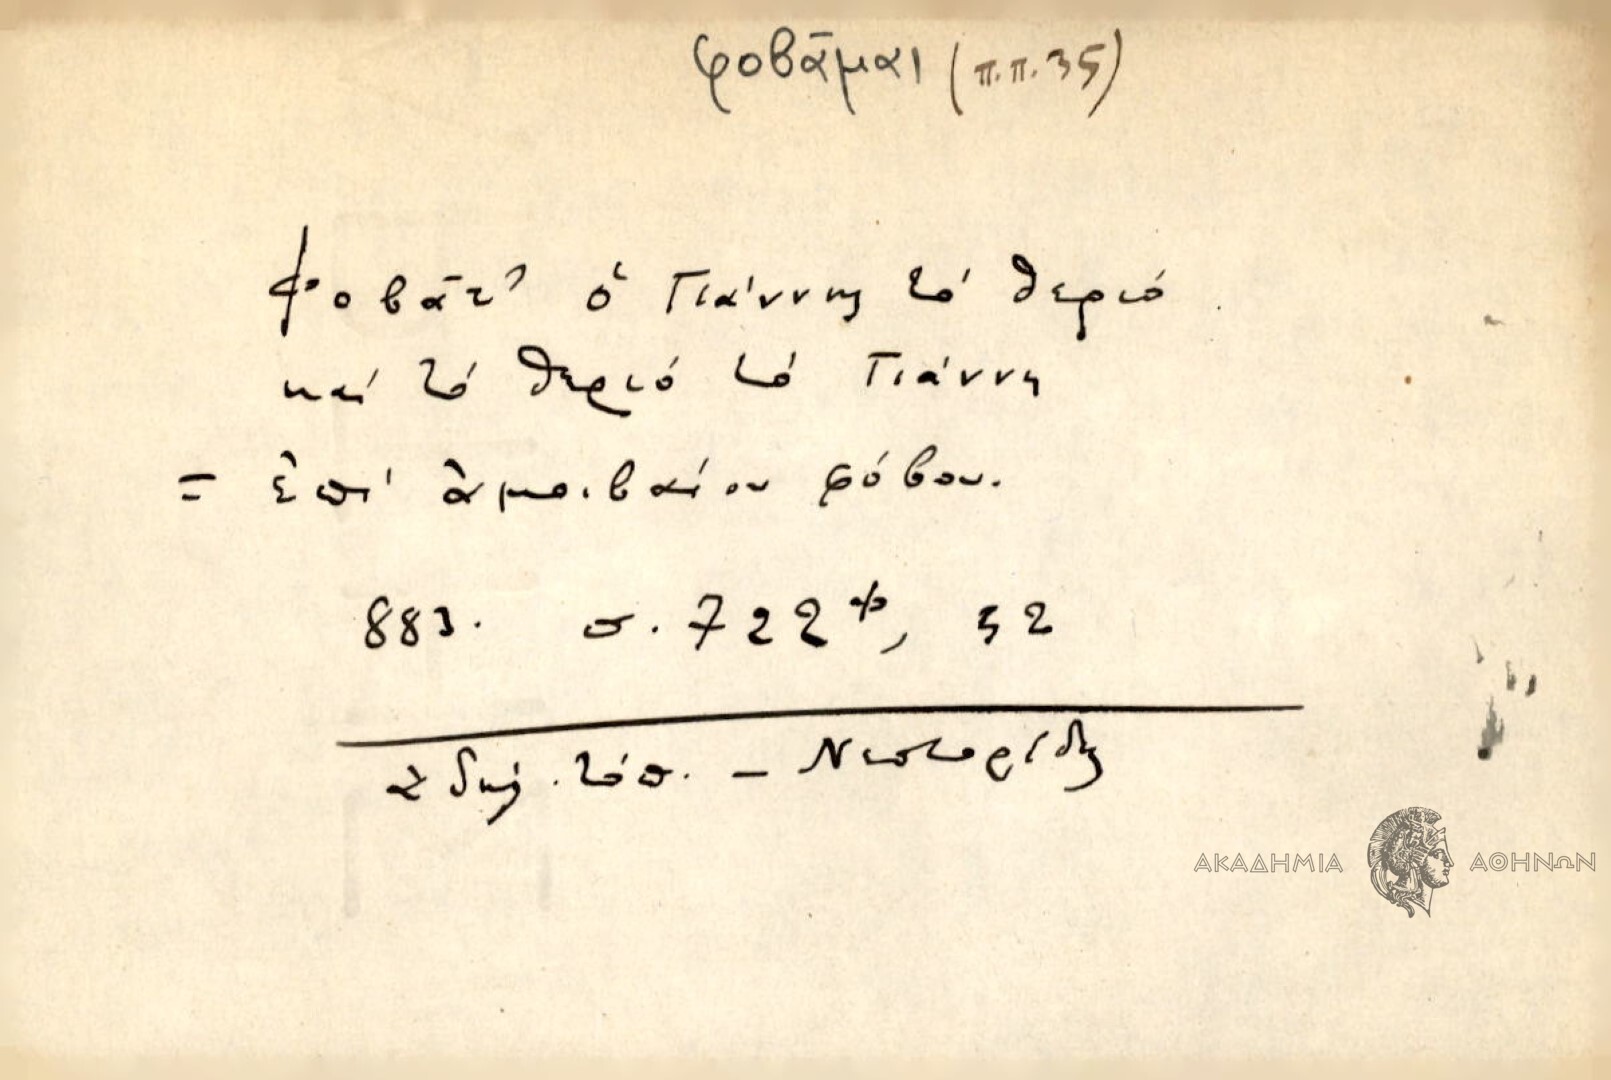 φοβᾶμαι (π.π. 35)
Φοβᾶτ' ὁ Γιάννης τό θεριό
καί τό θεριό τό Γιάννη
= ἐπί ἀμοιβαίου φόβου.
883. σ. 722φ, 52
ἀδήλ. τόπ. – Νεστορίδης
ΑΚΑΔΗΜΙΑ ΑΘΗΝΩΝ